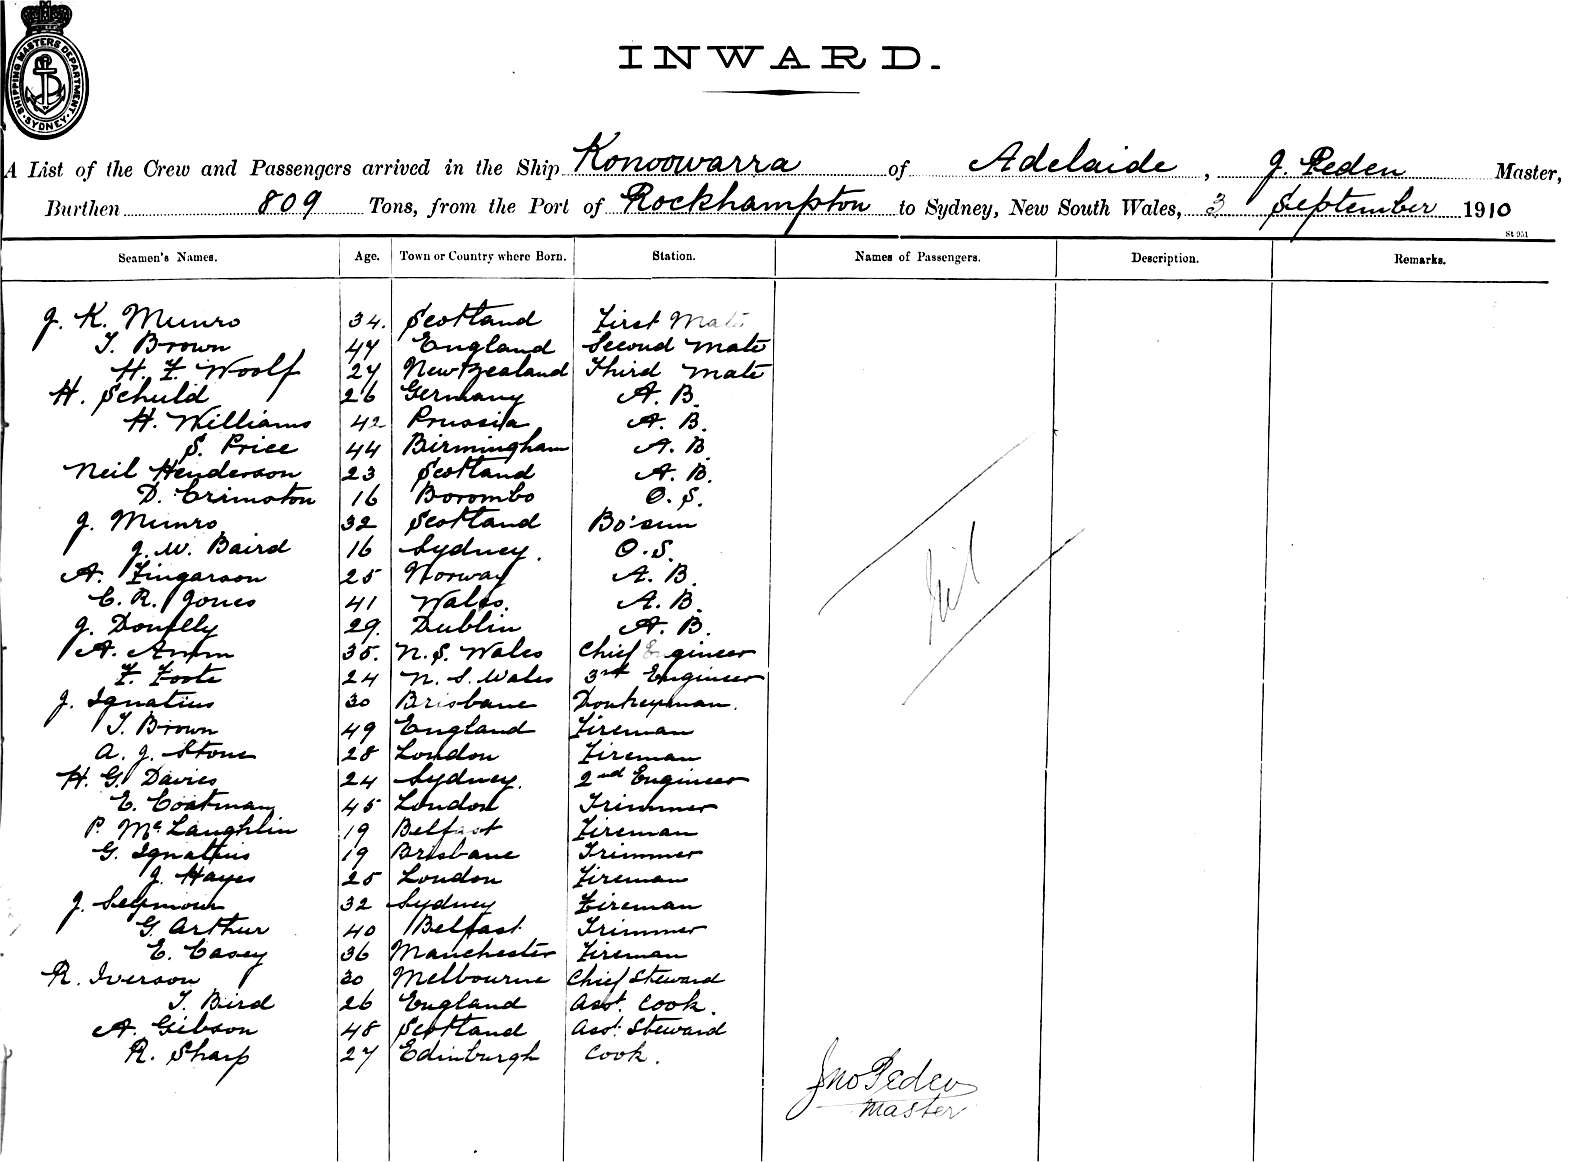 SHIPPING MASTERS DEPARTMENT
SYDNEY
INWARD.
A List of the Crew and Passengers arrived in the Ship Konoowarra of Adelaide, J. Peden Master,
Burthen 809 Tons, from the Port of Rockhampton to Sydney, New South Wales, 3 September 1910
St 951
Seamen's Names. Age. Town or Country where Born. Station. Names of Passengers. Description. Remarks.
J. K. Munro 34. Scotland First Mate
T. Brown 47 England Second Mate
H. F. Woolf 27 New Zealand Third Mate
H. Schuld 26 Germany A. B.
H. Williams 42 Prussia A. B.
S. Price 44 Birmingham A. B.
Neil Henderson 23 Scotland A. B.
D. Crimston 16 Borombo O. S.
J. Munro 32 Scotland Bo'sun
J. W. Baird 16 Sydney. O. S.
A. Fingarson 25 Norway A. B.
C. R. Jones 41 Wales. A. B.
J. Donelly 29. Dublin A. B.
Nil
A. 35. N. S. Wales Chief Engineer
F. Foote 24 N. S. Wales 3rd Engineer
J. Ignatius 30 Brisbane Donkeyman.
T. Brown 49 England Fireman
A. J. Stone 28 London Fireman
H. G. Davies 24 Sydney. 2nd Engineer
E. Coatman 45 London Trimmer
P. McLaughlin 19 Belfast Fireman
G. Ignatius 19 Brisbane Trimmer
J. Hayes 25 London Fireman
J. Seymour 32 Sydney Fireman
G. Arthur 40 Belfast Trimmer
E. Casey 36 Manchester Fireman
R. Iverson 30 Melbourne Chief Steward
T. Bird 26 England Asst. Cook.
A. Gibson 48 Scotland Asst. Steward
R. Sharp 27 Edinburgh Cook.
Jno Peden
Master